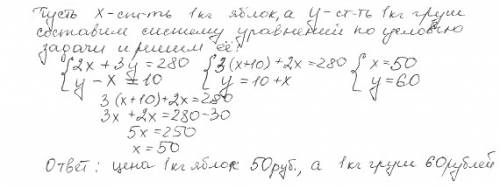 Пусть x-сит-ть 1кг яблок, а y-ст-ть 1кг груш
составим систему уравнений по условию
задачи и решим её:
{2x + 3y = 280 {3(x+10)+2x=280 {x=50
{y - x = 10 {y = 10+x {y=60
3(x+10)+2x=280
3x + 2x = 280-30
5x = 250
x = 50
Ответ: цена 1кг яблок 50руб., а 1кг груш 60рублей